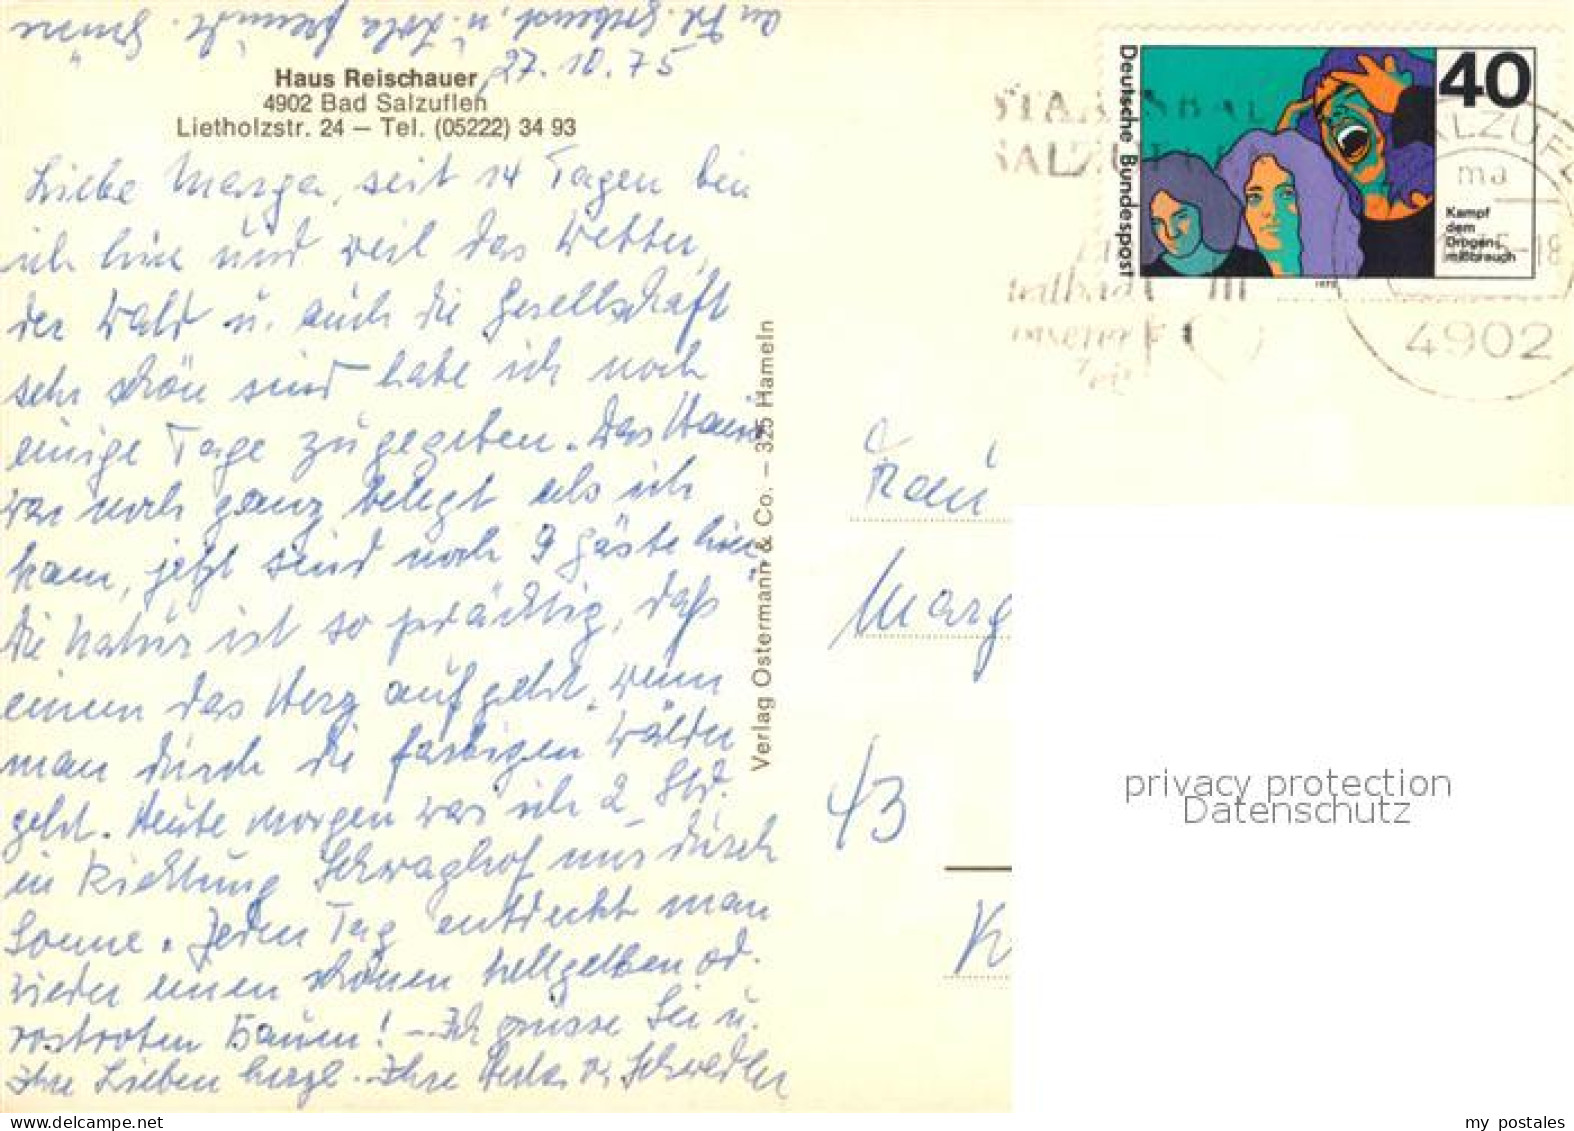 Grüne
An Frl. u. Lola
27.10.75
Haus Reischauer
4902 Bad Salzuflen
Lietholzstr. 24 — Tel. (05222) 34 93
Liebe Marga, seit 14 Tagen bin
ich hier und weil das Wetter,
der Wald u. auch die Gesellschaft
sehr schön sind habe ich noch
einige Tage zugegeben. Das Haus
war noch ganz belegt als ich
kam, jetzt sind noch 9 Gäste hier.
Die Natur ist so prächtig, daß
einem das Herz aufgeht, wenn
man durch die farbigen Wälder
geht. Heute morgen war ich 2 Std.
in Richtung Schwaghof nur durch
Sonne. Jeden Tag entdeckt man
wieder einen schönen hellgelben od.
rostroten Baum! — Ich grüsse Sie u.
Ihre Lieben herzl. Ihre Herta v. Schwedler
Verlag Ostermann & Co. — 325 Hameln
Deutsche Bundespost
40
Kampf
dem
Drogen-
mißbrauch
1975
STAATSBAD
SALZUFLEN
SALZUFLEN
ma
-18
4902
Frau
Marg
43
K
privacy protection
Datenschutz
my postales